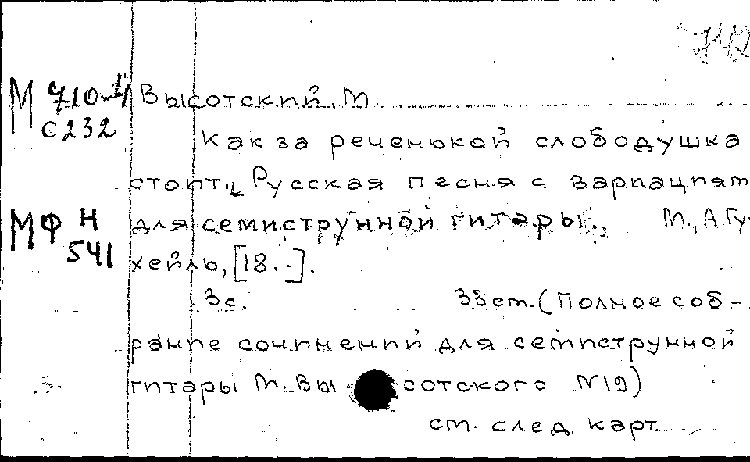 М 710-4 Высотский, М.
С232
Как за реченькой слободушка
стоит. Русская песня с вариация
МФ Н для семиструнной гитары. М., А.Гу-
541
хейль, [18..].
3с. 33cm. (Полное соб-
рание сочинений для семиструнной
гитары М. Высотского №19)
см. след. карт.